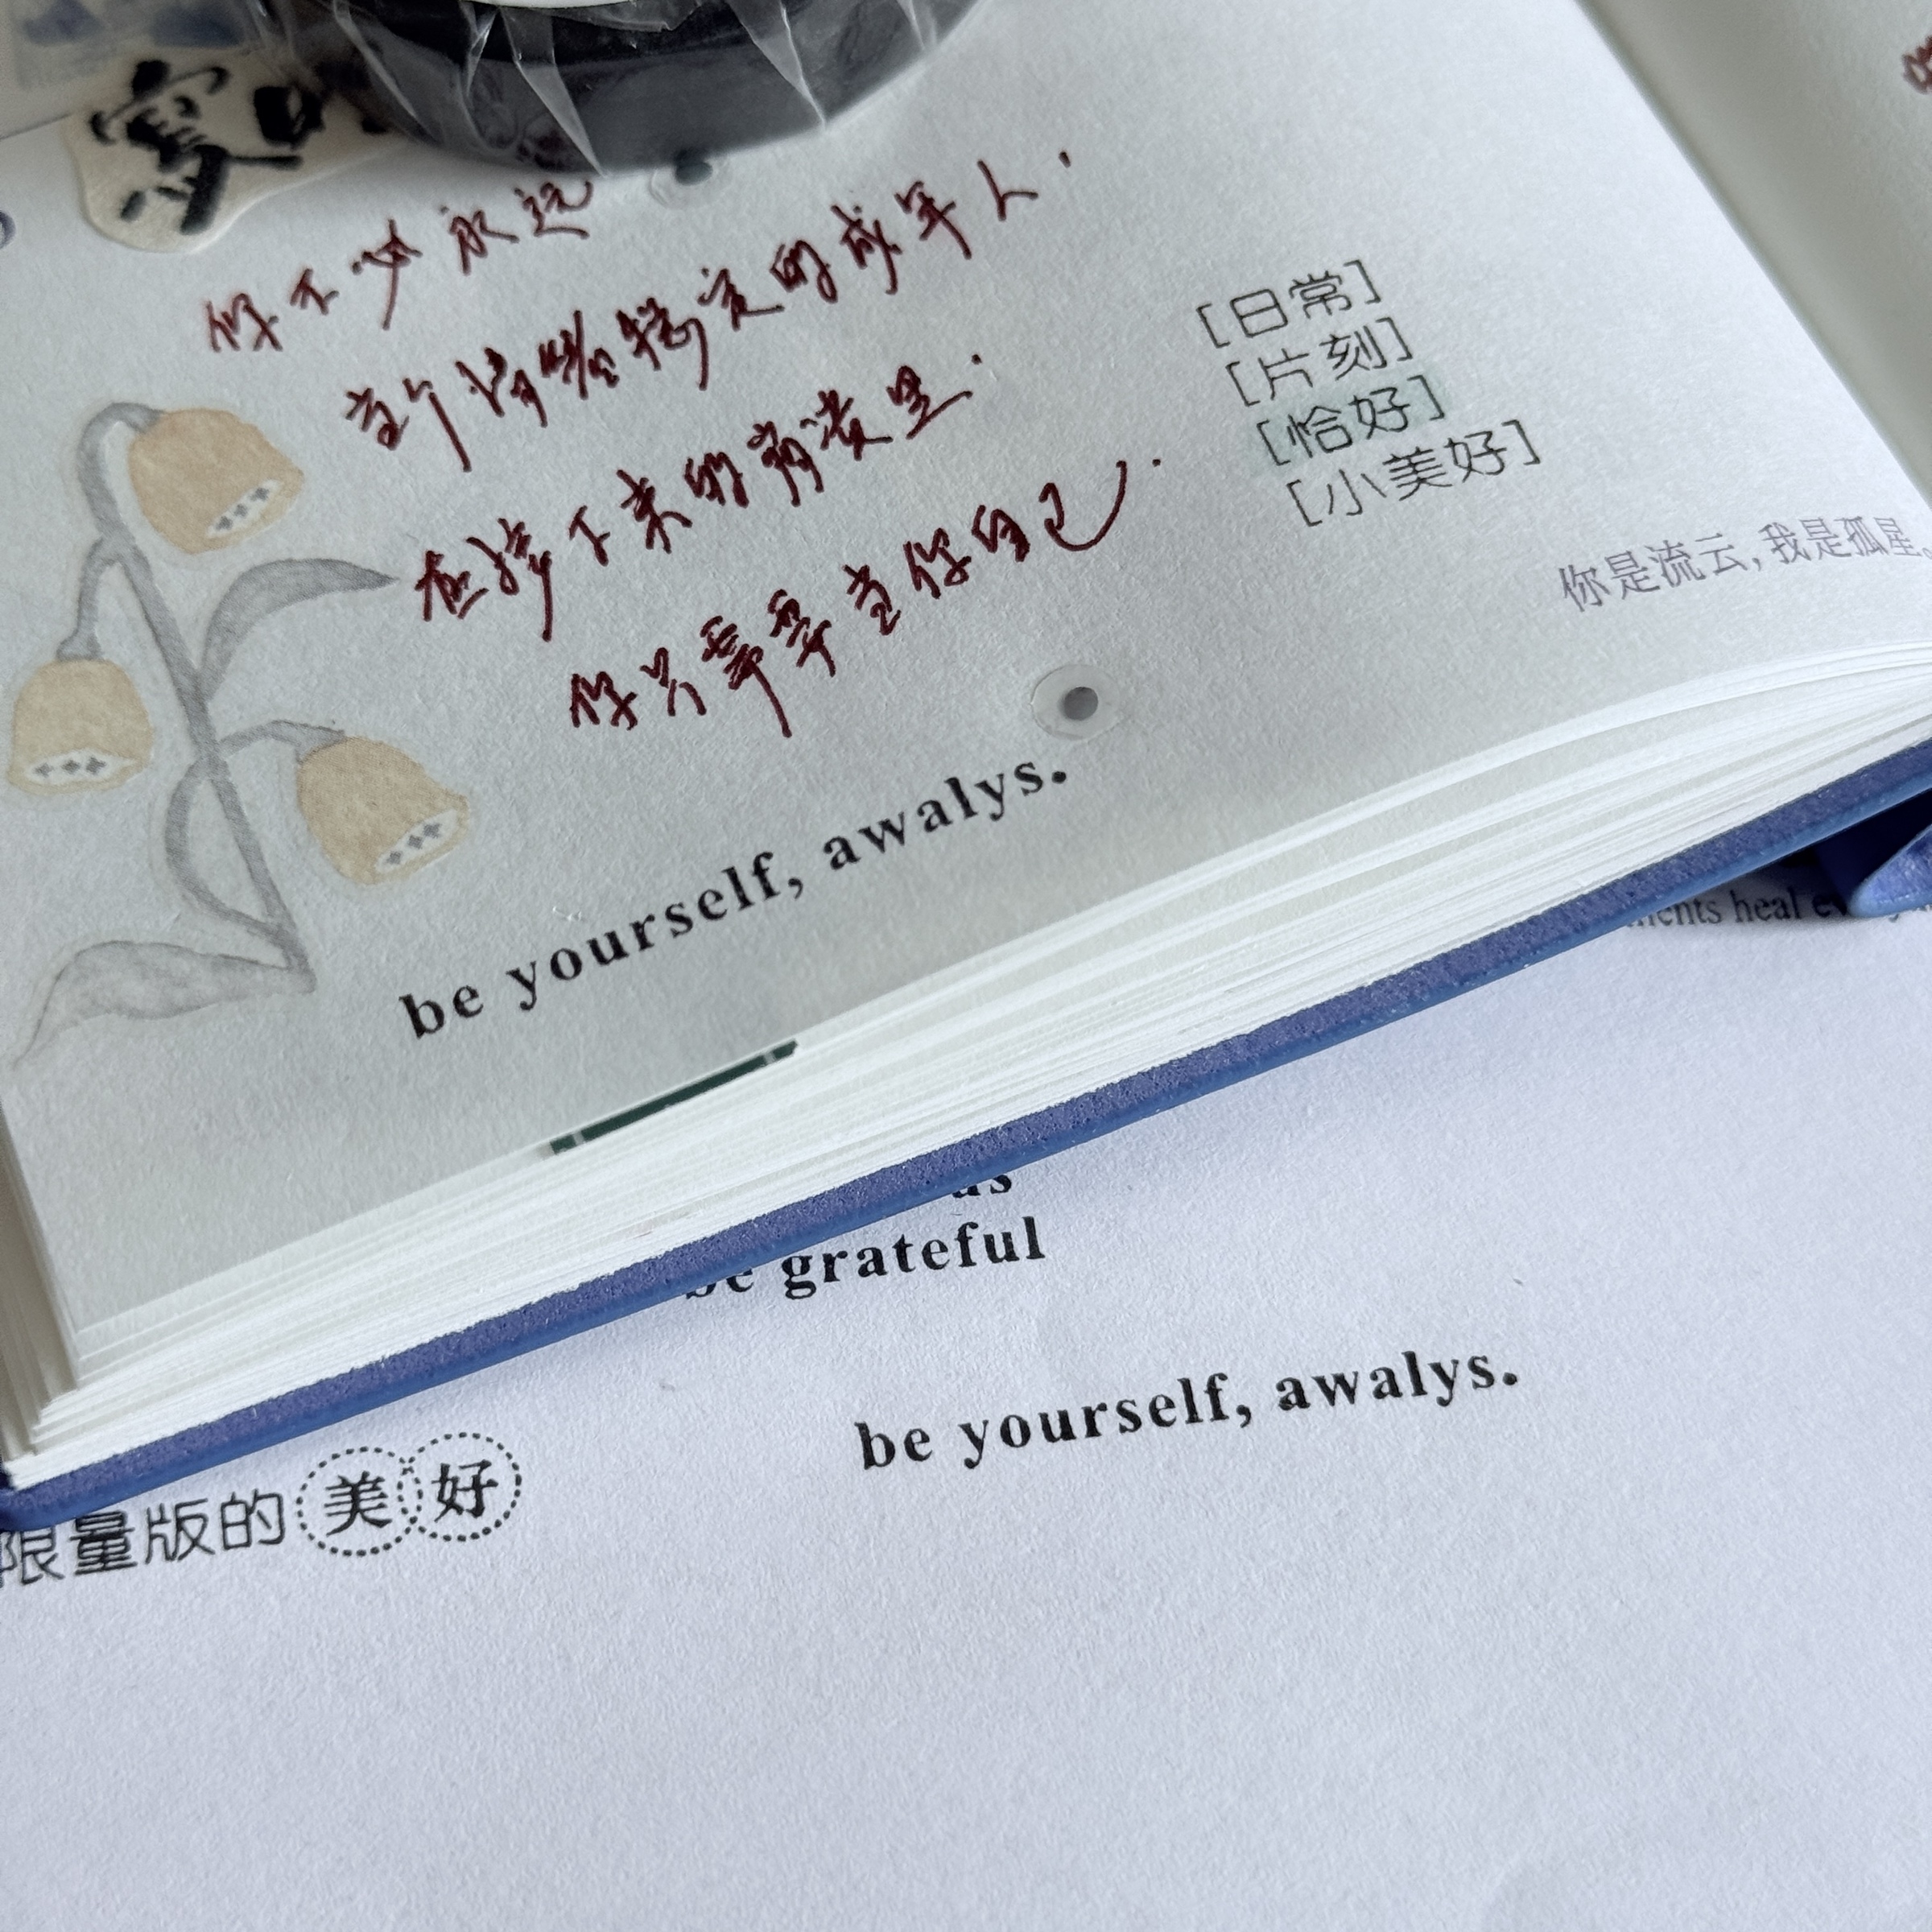 你不必永远
当个情绪稳定的成年人.
在接下来的崩溃里.
你只需要当你自己.
[日常]
[片刻]
[恰好]
[小美好]
你是流云,我是孤星
be yourself, awalys.
heal
as
be grateful
be yourself, awalys.
限量版的美好